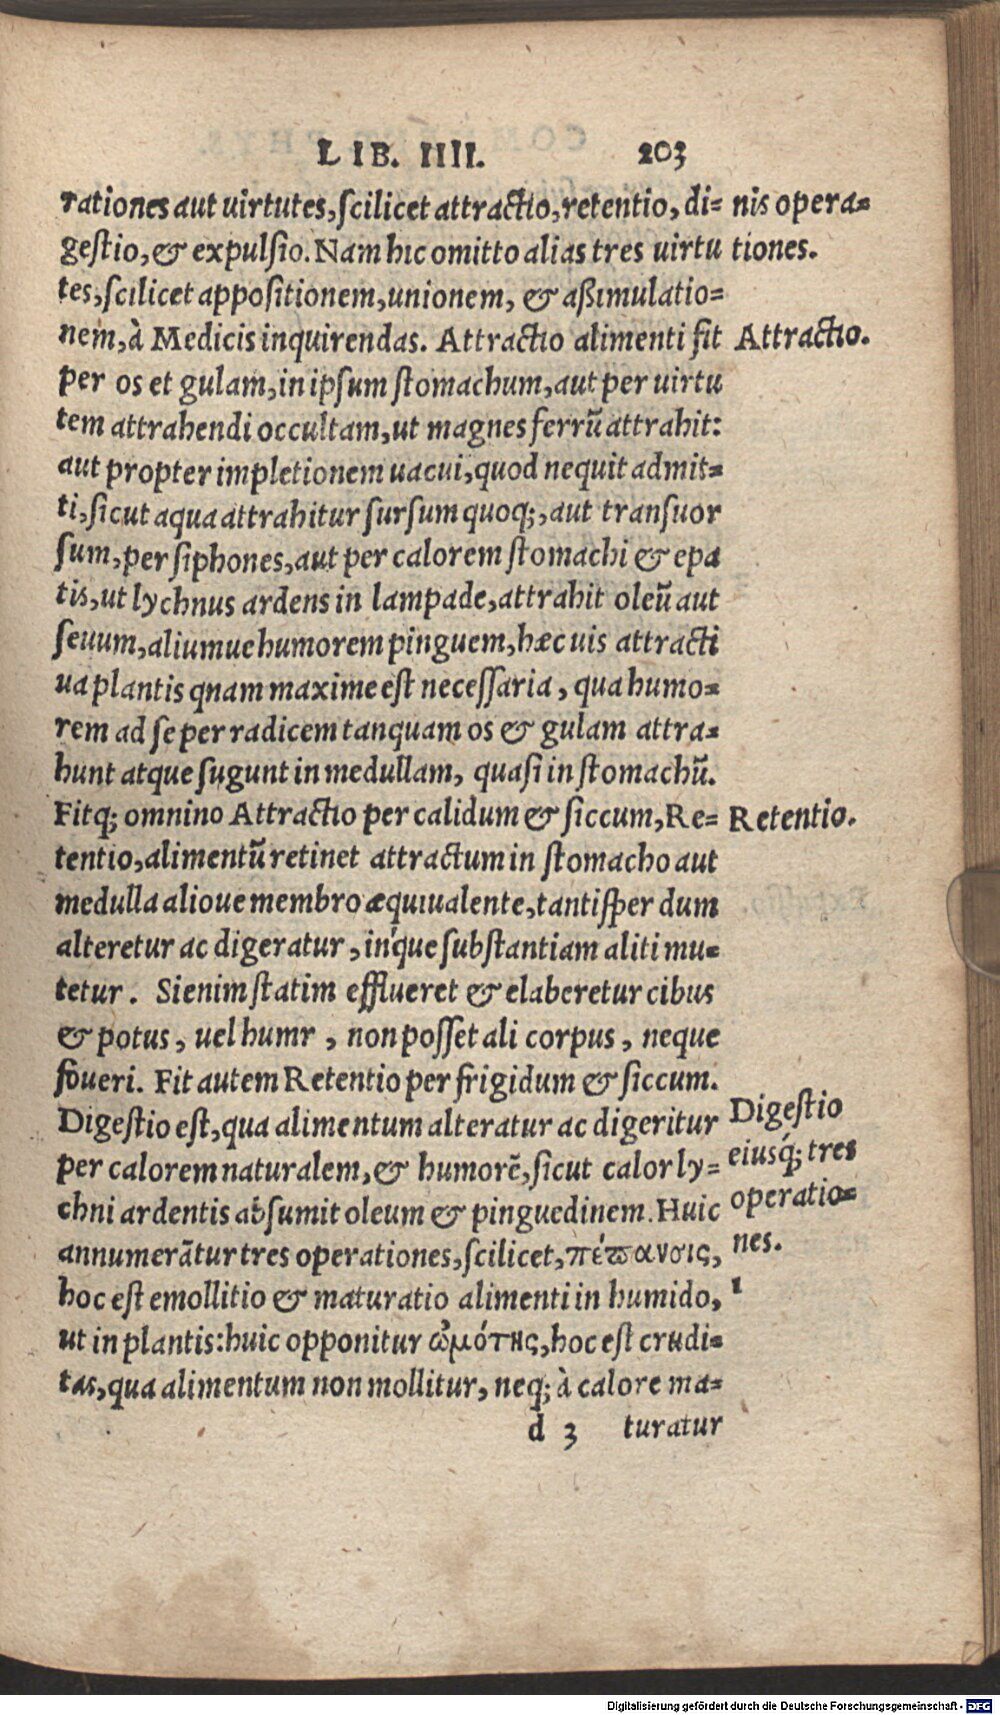 LIB. IIII. 203
rationes aut uirtutes, scilicet attractio, retentio, di=
gestio, & expulsio. Nam hic omitto alias tres uirtu
tes, scilicet appositionem, unionem, & aßimulatio=
nem, à Medicis inquirendas. Attractio alimenti fit
per os et gulam, in ipsum stomachum, aut per uirtu
tem attrahendi occultam, ut magnes ferrũ attrahit:
aut propter impletionem uacui, quod nequit admit=
ti, sicut aqua attrahitur sursum quoq;, aut transuor
sum, per siphones, aut per calorem stomachi & epa
tis, ut lychnus ardens in lampade, attrahit oleũ aut
seuum, aliumue humorem pinguem, hæc uis attracti
ua plantis qnam maxime est necessaria, qua humo=
rem ad se per radicem tanquam os & gulam attra=
hunt atque sugunt in medullam, quasi in stomachũ.
Fitq; omnino Attractio per calidum & siccum, Re=
tentio, alimentũ retinet attractum in stomacho aut
medulla alioue membro æquiualente, tantisper dum
alteretur ac digeratur, in'que substantiam aliti mu=
tetur. Si enim statim efflueret & elaberetur cibus
& potus, uel humr, non posset ali corpus, neque
foueri. Fit autem Retentio per frigidum & siccum.
Digestio est, qua alimentum alteratur ac digeritur
per calorem naturalem, & humorẽ, sicut calor ly=
chni ardentis absumit oleum & pinguedinem. Huic
annumerãtur tres operationes, scilicet, πέπανσις,
hoc est emollitio & maturatio alimenti in humido,
ut in plantis: huic opponitur ὠμότης, hoc est crudi=
tas, qua alimentum non mollitur, neq; à calore ma=
d 3 turatur
nis opera=
tiones.
Attractio.
Retentio.
Digestio
eiusq́; tres
operatio=
nes.
1
Digitalisierung gefördert durch die Deutsche Forschungsgemeinschaft - DFG